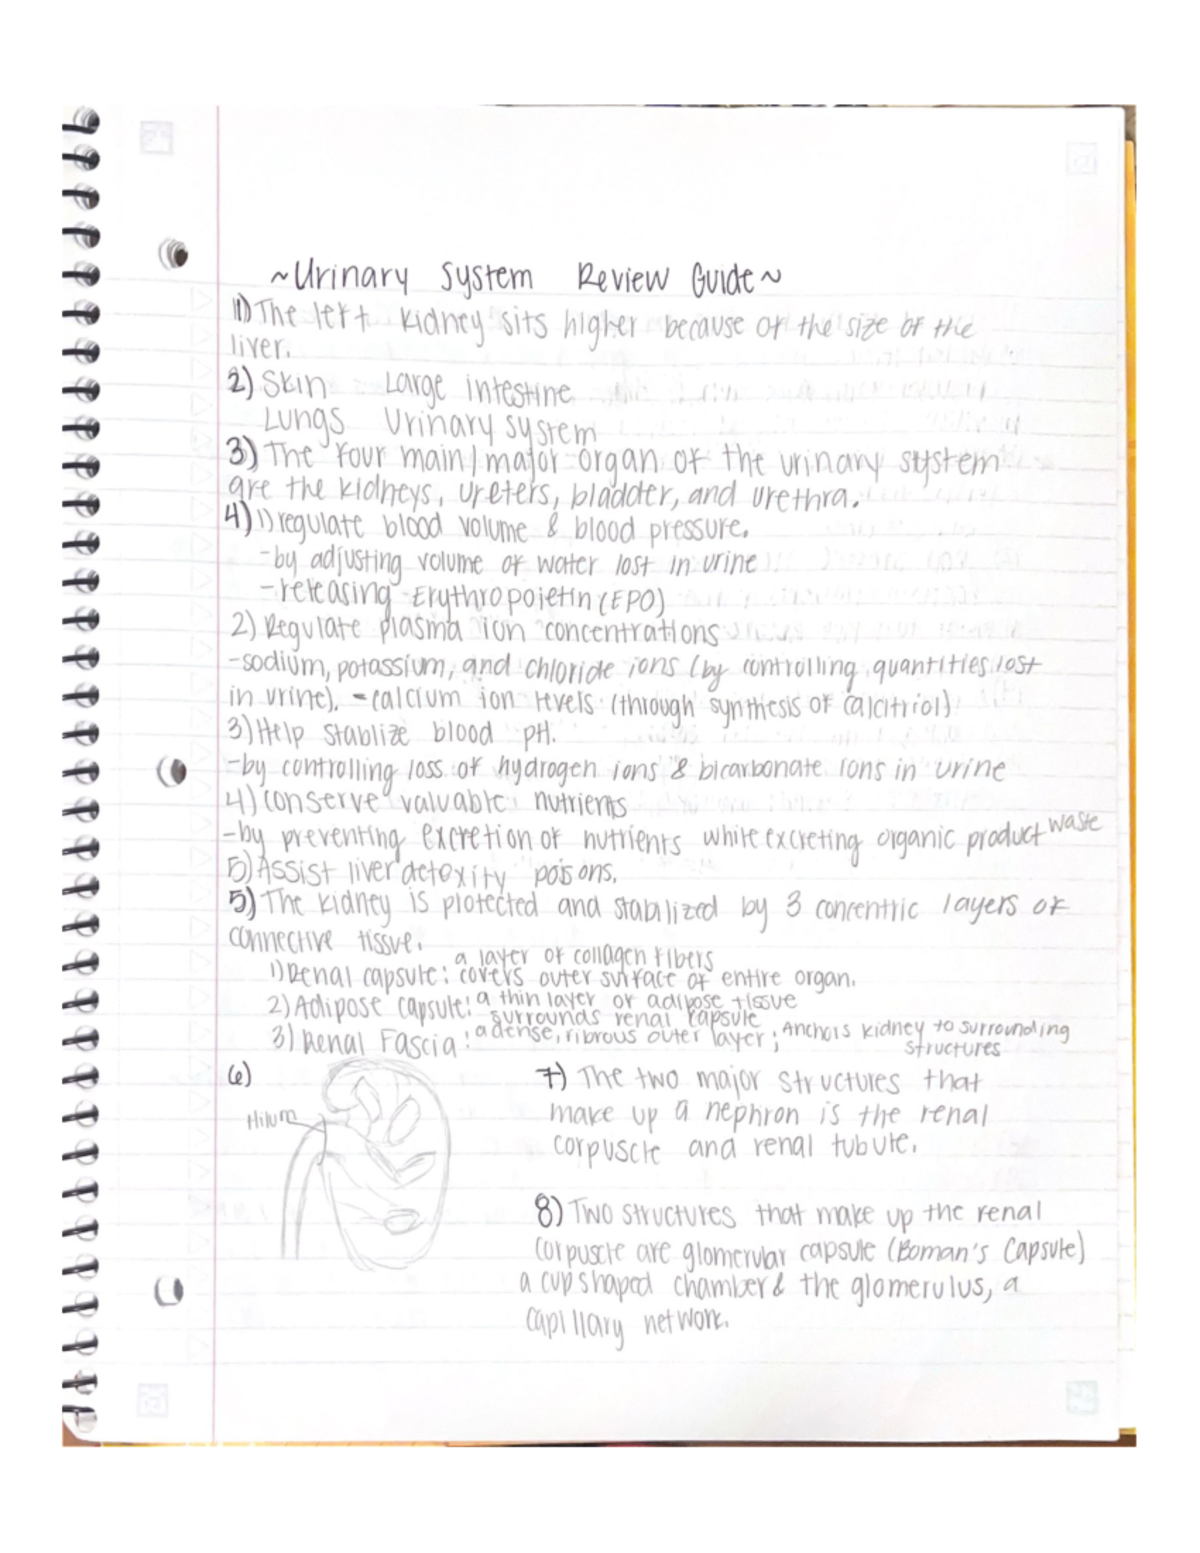 ~Urinary System Review Guide~
1) The left kidney sits higher because of the size of the
liver.
2) Skin Large intestine
Lungs Urinary system
3) The four main/major organ of the urinary system
are the kidneys, ureters, bladder, and urethra.
4) 1) regulate blood volume & blood pressure.
-by adjusting volume of water lost in urine
-releasing Erythropoietin (EPO)
2) Regulate plasma ion concentrations
-sodium, potassium, and chloride ions (by controlling quantities lost
in urine). -calcium ion levels (through synthesis of calcitriol)
3) Help stablize blood pH.
-by controlling loss of hydrogen ions & bicarbonate ions in urine
4) conserve valuable nutrients
-by preventing excretion of nutrients while excreting organic product waste
5) Assist liver detoxity poisons.
5) The kidney is protected and stabilized by 3 concentric layers of
connective tissue.
a layer of collagen fibers
1) Renal capsule: covers outer surface of entire organ.
2) Adipose capsule: a thin layer of adipose tissue
surrounds renal capsule
3) Renal Fascia: a dense, fibrous outer layer; Anchors kidney to surrounding
structures
6)
Hilum
7) The two major structures that
make up a nephron is the renal
corpuscle and renal tubule.
8) Two structures that make up the renal
corpuscle are glomerular capsule (Boman's Capsule)
a cup shaped chamber & the glomerulus, a
capillary network.